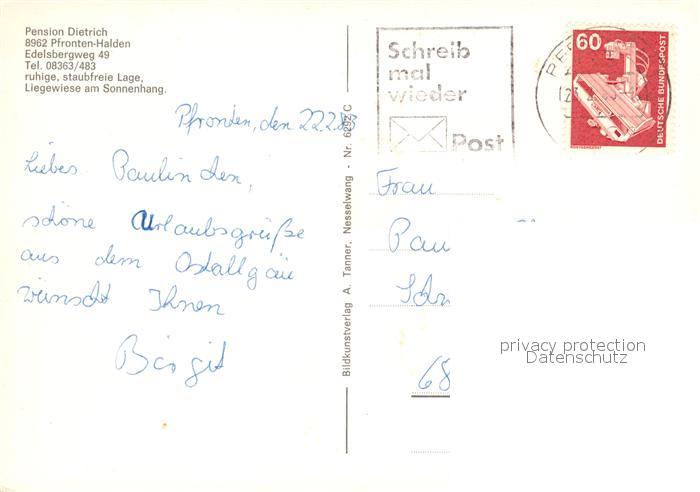 Pension Dietrich
8962 Pfronten-Halden
Edelsbergweg 49
Tel. 08363/483
ruhige, staubfreie Lage,
Liegewiese am Sonnenhang.
Pfronten, den 22.2.83
Liebes Paulinchen,
schöne Urlaubsgrüße
aus dem Ostallgäu
wünscht Ihnen
Birgit
Bildkunstverlag A. Tanner, Nesselwang - Nr. 6292 C
Schreib
mal
wieder
Post
60
DEUTSCHE BUNDESPOST
Frau
Pau
Schr
68
privacy protection
Datenschutz